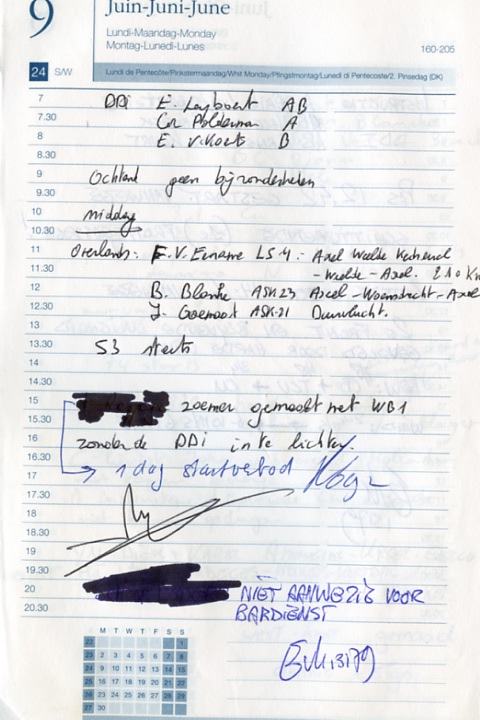 9 Juin-Juni-June
Lundi-Maandag-Monday
Montag-Lunedi-Lunes
160-205
24 S/W Lundi de Pentecôte/Pinkstermaandag/Whit Monday/Pfingstmontag/Lunedì di Pentecoste/2. Pinsedag (DK)
7 DDi E. Leybaert AB
7.30 Cor Polderman A
8 E. v. Koets B
8.30
9 Ochtend geen bijzonderheden
9.30
10 middag
10.30
11 Overlands: F. V. Ename LS 4 : Axel Weelde
11.30 - Weelde - Axel.
12 B. Blanke ASK23 Axel - Woensdrecht - Axel
12.30 J. Goemaat ASK-21 Duurvlucht.
13
13.30 53 starts
14
14.30
15 zoemer gemaakt met WB1
15.30
16 zonder de DDi in te lichten.
16.30
17 1 dag startverbod
17.30
18
18.30
19
19.30
20 NIET AANWEZIG VOOR
20.30 BARDIENST
M T W T F S S
22 1
23 2 3 4 5 6 7 8
24 9 10 11 12 13 14 15
25 16 17 18 19 20 21 22
26 23 24 25 26 27 28 29
27 30